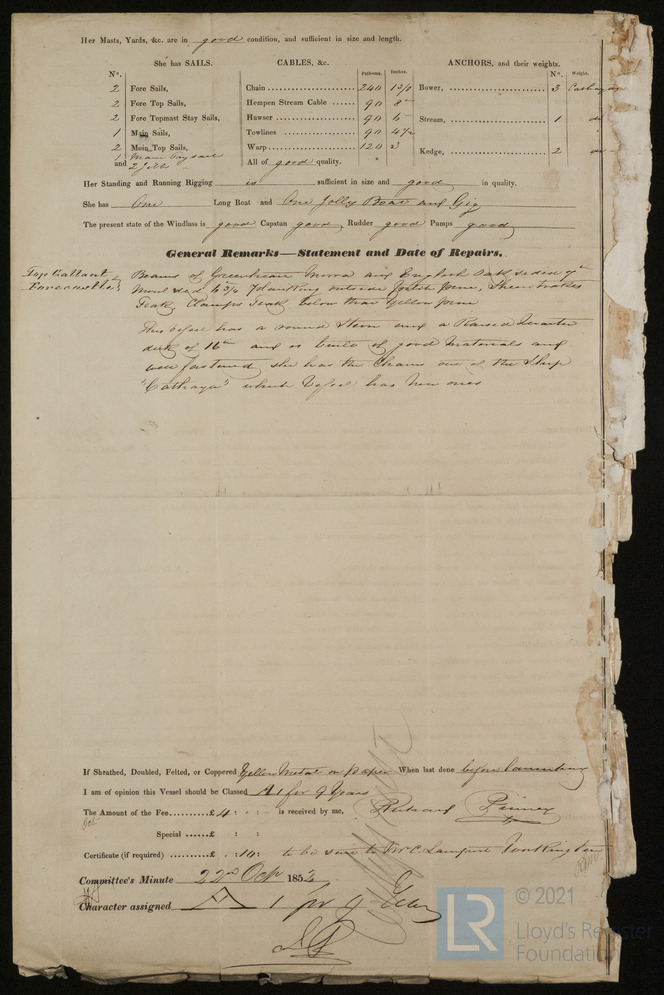 Her Masts, Yards, &c. are in good condition, and sufficient in size and length.
She has SAILS.
CABLES, &c.
Fathoms.
Inches.
ANCHORS, and their weights.
N°.
N°.
Weight.
2 Fore Sails,
Chain 240
Bower, 3
2 Fore Top Sails,
Hempen Stream Cable 90 8
2 Fore Topmast Stay Sails,
Hawser 90 6
Stream, 1 do
1 Main Sails,
Towlines 90 4½
2 Main Top Sails,
Warp 120 3
Kedge, 2 do
and
All of good quality.
Her Standing and Running Rigging is sufficient in size and good in quality.
She has One Long Boat and One Jolly Boat and Gig
The present state of the Windlass is good Capstan good Rudder good Pumps good
General Remarks—Statement and Date of Repairs.
Top Gallant
Forecastle
Beams of Greenheart Morra and English Oak, sided
Planking outside Pitch Pine, Sheerstrakes
Teak, Clamps Teak below that Yellow Pine
This Vessel has a round Stern and a Raised Quarter
deck of 16 in and is built of good Materials and
well fastened, she has the Chains out of the Ship
"Cathaya" which Vessel has new ones
If Sheathed, Doubled, Felted, or Coppered Yellow Metal on Paper When last done before launching
I am of opinion this Vessel should be Classed A 1 for 9 Years
The Amount of the Fee £ 4 : : is received by me,
Special £ : :
Certificate (if required) £ : 10 : to be sent to Mr C. Lamport Workington
Committee's Minute 22nd Oct 1852
Character assigned A 1 for 9
LR
© 2021
Lloyd's Register
Foundation